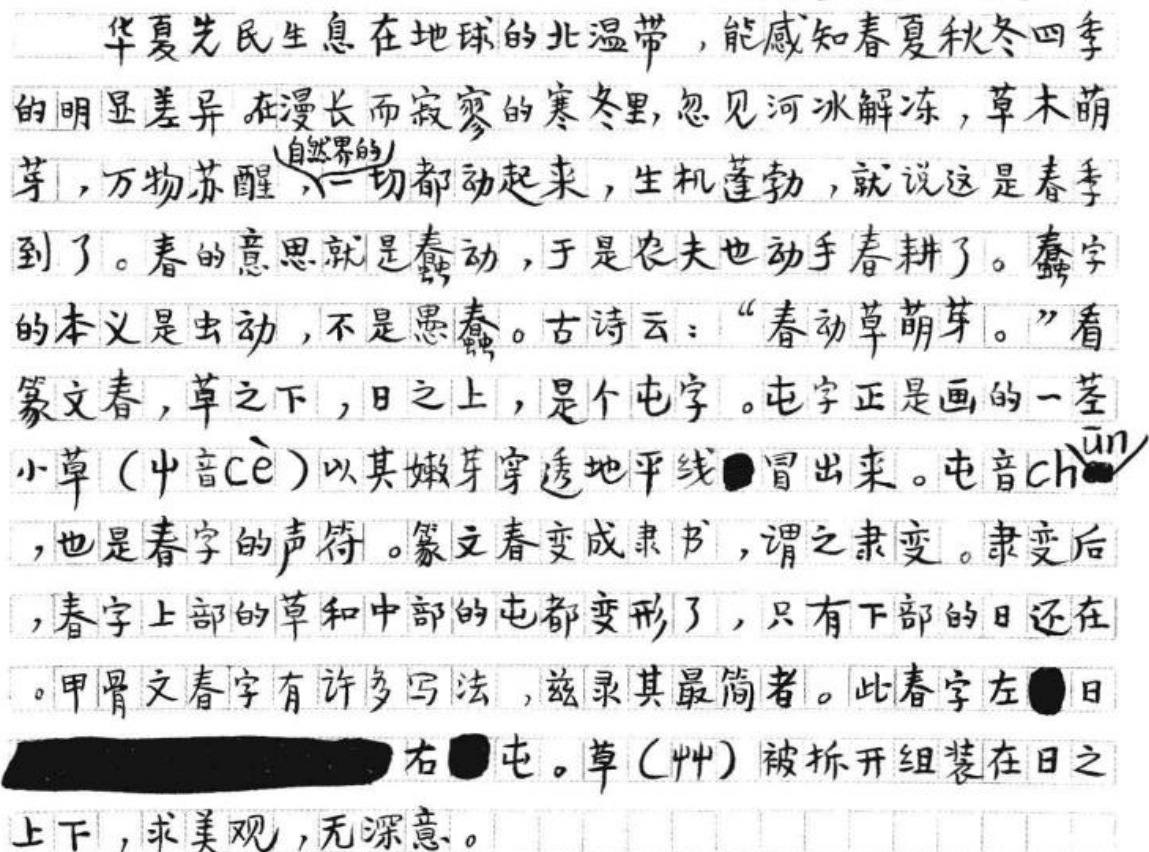 华夏先民生息在地球的北温带，能感知春夏秋冬四季
的明显差异。在漫长而寂寥的寒冬里，忽见河冰解冻，草木萌
芽，万物苏醒，自然界的一切都动起来，生机蓬勃，就说这是春季
到了。春的意思就是蠢动，于是农夫也动手春耕了。蠢字
的本义是虫动，不是愚蠢。古诗云：“春动草萌芽。”看
篆文春，草之下，日之上，是个屯字。屯字正是画的一茎
小草（屮音cè）以其嫩芽穿透地平线冒出来。屯音chūn
，也是春字的声符。篆文春变成隶书，谓之隶变。隶变后
，春字上部的草和中部的屯都变形了，只有下部的日还在
。甲骨文春字有许多写法，兹录其最简者。此春字左日
右屯。草（艸）被拆开组装在日之
上下，求美观，无深意。